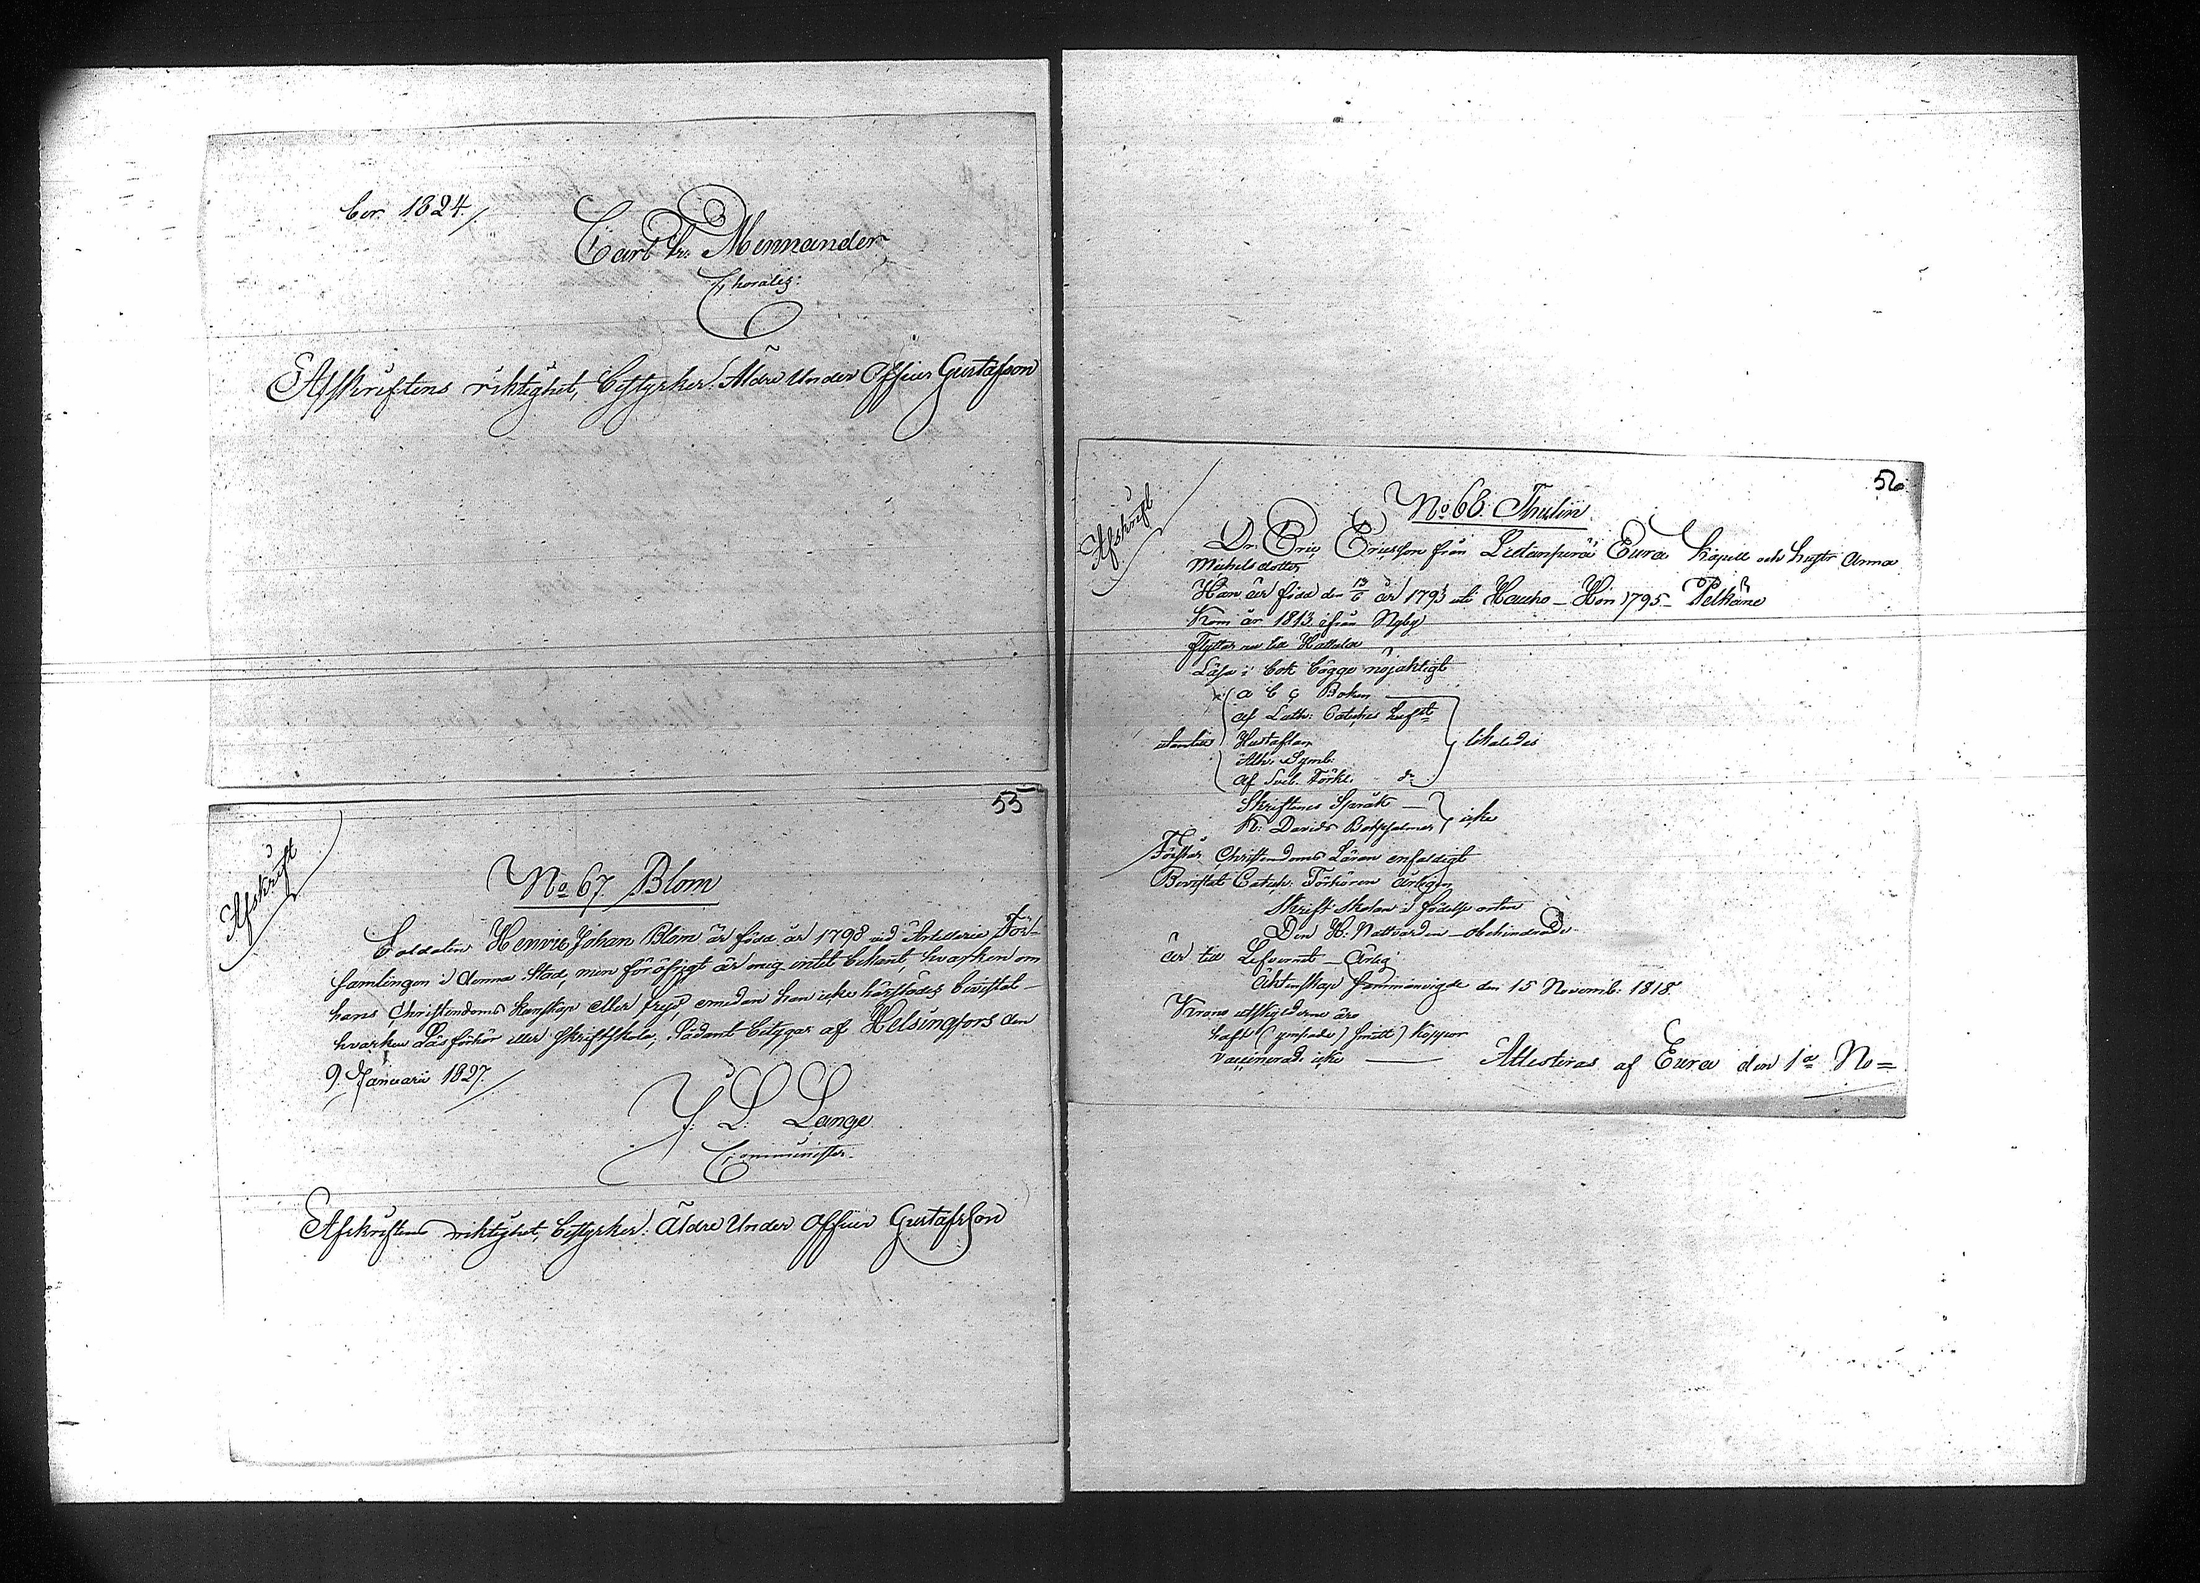 ber. 1824./
Carl Fr. Mennander
Choralis:
Afskriftens riktighet, Bestyrker: Äldre Under Officer Gustafson
55
Afskrift
No 67 Blom
Soldaten Henric Johan Blom är född år 1798 vid Artillerie För-
samlingen i denna Stad, men för öfrigt är mig intet bekant, hvarken om
hans Christendoms kunskap eller frejd, emedan han icke härstädes bevistat
hvarken Läsförhör eller Skriftskola; Sådant betygar af Helsingfors den
9. Januarii 1827.
J. L. Lange
Comminister.
Afskriftens riktighet, Bestyrker: Äldre Under Officer Gustafsson
56
Afskrift
No 68 Thulin
Dr. Eric Ericsson från Eura Kapell och hustr Anna
Michelsdotter
Han är född den 13/6 år 1793 uti Hauho – Hon 1795 – Pelkäne
Kom år 1813 ifrån Nyby
Flyttar nu till Hattula
Läsa i bok bägge nöjaktigt
a b c Boken
af Luth: Catches
utantill Hustaflan likaledes
Ath. Symb:
af Sveb. Förkl. – d:o
Skriftenes Språk –
K: Davids Botpsalmer icke
Förstår Christendoms Läran enfaldigt
Bevistat Catech: Förhören årligen
Skrift skolan i födelse orten
Den H: Nattvarden – obehindrade
är till Lefvernet – Ärlig
Äktenskap sammanvigde den 15 Novemb: 1818.
Krono utskylderne äro
haft (ympade) smitt) koppor
Vaccinerad. icke — Attesteras af Eura den 1a No=